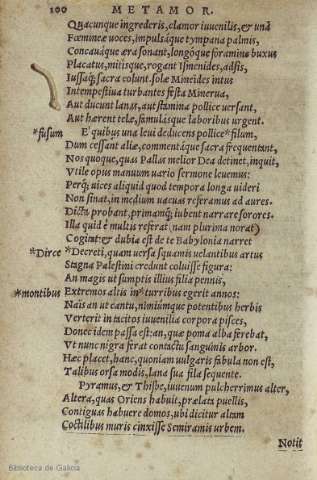 100 METAMOR.
Quacunque ingrederis, clamor iuuenilis, & unà
Fœmineæ uoces, impulsáque tympana palmis,
Concauáque æra sonant, longóque foramine buxus
Placatus, mitisque, rogant Ismenides, adsis,
Iussáq; sacra colunt. solæ Mineides intus
Intempestiua turbantes festa Minerua,
Aut ducunt lanas, aut stamina pollice uersant,
Aut hærent telæ, famulásque laboribus urgent.
*fusum E` quibus una leui deducens pollice *filum,
Dum cessant aliæ, commentáque sacra frequentant,
Nos quoque, quas Pallas melior Dea detinet, inquit,
Vtile opus manuum uario sermone leuemus:
Perq; uices aliquid quod tempora longa uideri
Non sinat, in medium uacuas referamus ad aures.
Dicta probant, primamq; iubent narrare sorores.
Illa quid è multis referat (nam plurima norat)
Cogitat: & dubia est de te Babylonia narret
*Dirce *Decreti, quam uersa squamis uelantibus artus
Stagna Palestini credunt coluisse figura:
An magis ut sumptis illius filia pennis,
*montibus Extremos altis in *turribus egerit annos:
Naïs an ut cantu, nimiúmque potentibus herbis
Verterit in tacitos iuuenilia corpora pisces,
Donec idem passa est: an, quæ poma alba ferebat,
Vt nunc nigra ferat contactu sanguinis arbor.
Hæc placet, hanc, quoniam uulgaris fabula non est,
Talibus orsa modis, lana sua fila sequente.
Pyramus, & Thisbe, iuuenum pulcherrimus alter,
Altera, quas Oriens habuit, prælata puellis,
Contiguas habuere domos, ubi dicitur altam
Coctilibus muris cinxisse Semiramis urbem.
Notit
Biblioteca de Galicia